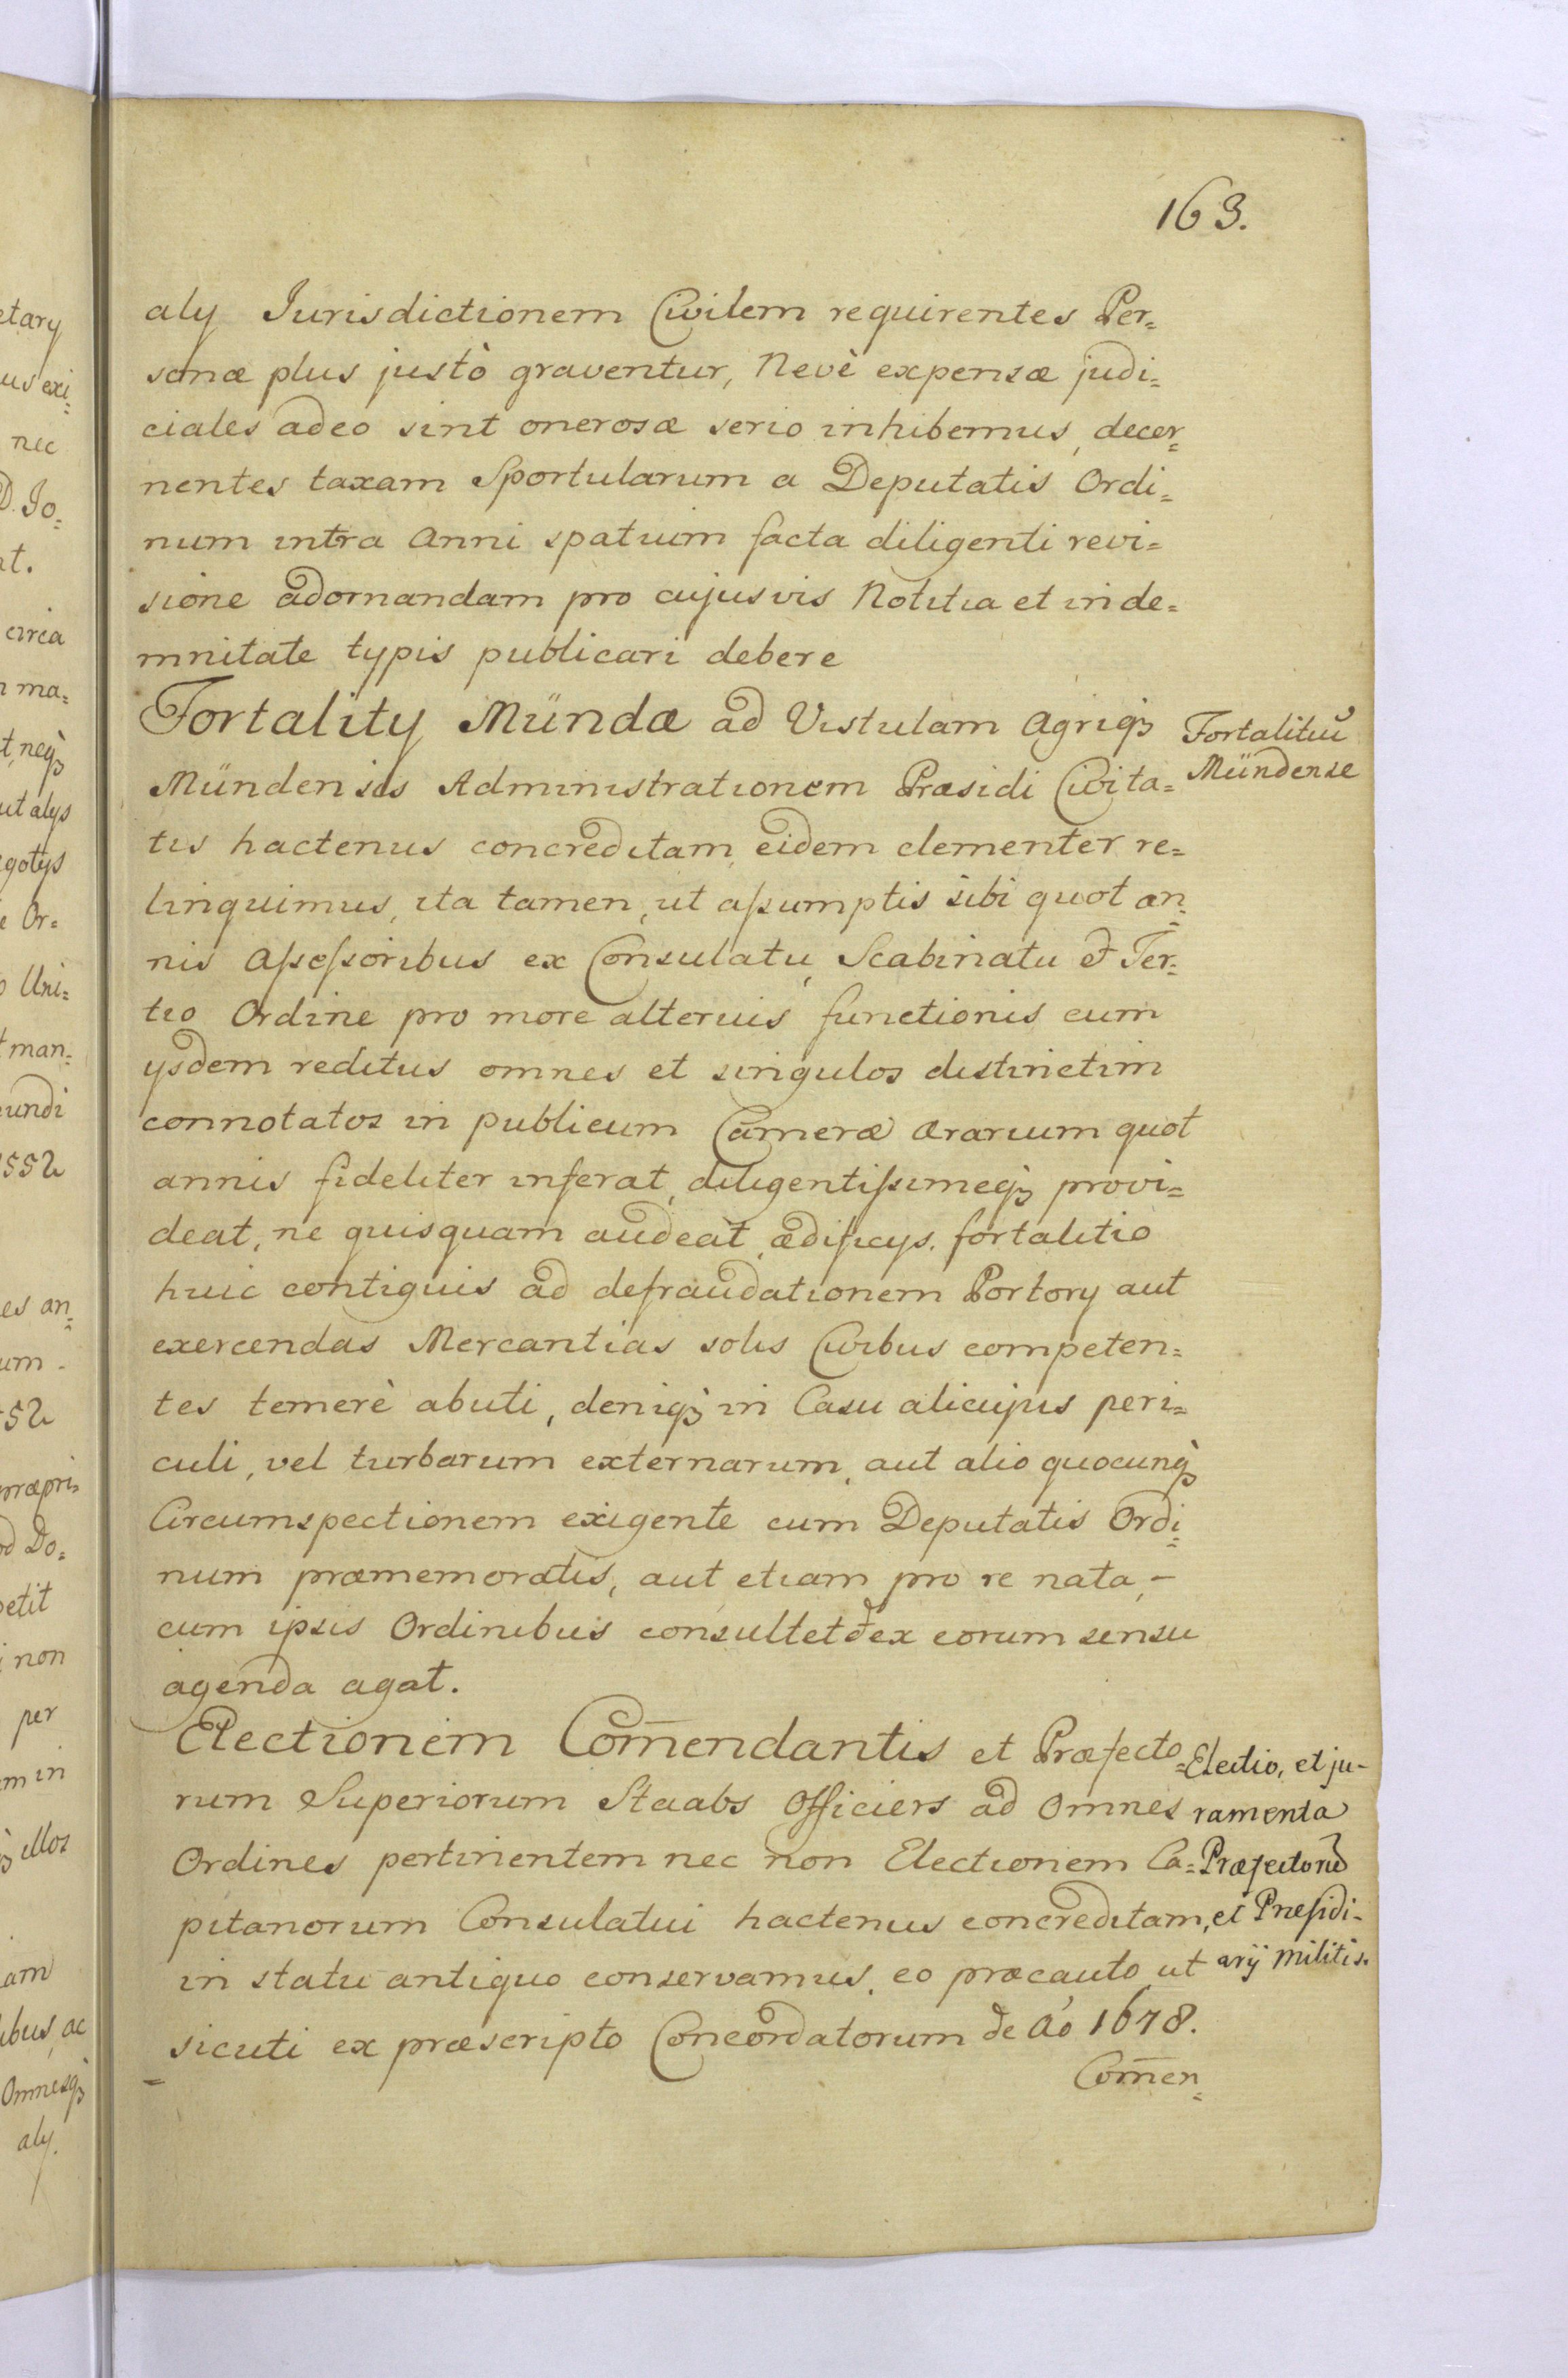 163.
alij Jurisdictionem Civilem requirentes Per=
sonæ plus justò graventur, Nevè expensæ judi=
ciales adeo sint onerosæ serio inhibemus, decer=
nentes taxam Sportularum a Deputatis Ordi=
num intra Anni spatium facta diligenti revi=
sione adornandam pro cujusvis Notitia et inde=
mnitate typis publicari debere
Fortalitij Mündæ ad Vistulam Agriqꝫ
Fortalitiũ
Mündensis Administrationem Præsidi Civita=
Mündense
tis hactenus concreditam, eidem clementer re=
linquimus, ita tamen, ut aſsumptis sibi quot an=
nis Aſseſsoribus ex Consulatu, Scabinatu et Ter=
tio Ordine pro more alterius functionis cum
ijsdem reditus omnes et singulos distinctim
connotatos in publicum Cameræ ærarium quot
annis fideliter inferat, diligentiſsimeqꝫ provi=
deat, ne quisquam audeat ædificijs. fortalitio
huic contiguis ad defraudationem Portorij aut
exercendas Mercantias solis Civibus competen=
tes temerè abuti, deniqꝫ in Casu alicujus peri=
culi, vel turbarum externarum, aut alio quocunqꝫ
Circumspectionem exigente cum Deputatis Ordi=
num præmemoratis, aut etiam pro re nata, -
cum ipsis Ordinibus consultet et ex eorum sensu
agenda agat.
Electionem Com̄endantis et Præfecto=
Electio, et ju-
rum Superiorum Staabs Officiers ad Omnes
ramenta
Ordines pertinentem nec non Electionem Ca=
Præfectorũ
pitanorum Consulatui hactenus concreditam,
et Præſidi-
in statu antiquo conservamus, eo præcauto, ut
arij Militis.
sicuti ex præscripto Concordatorum de Aó 1678.
Com̄en=